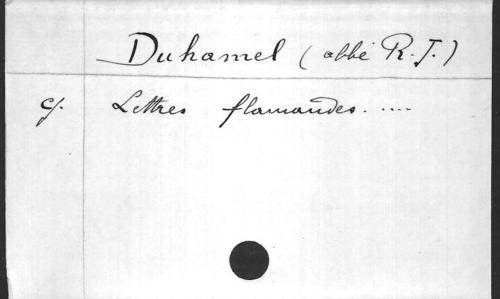 Duhamel (abbé R. J.)
cf. Lettres flamandes. ....